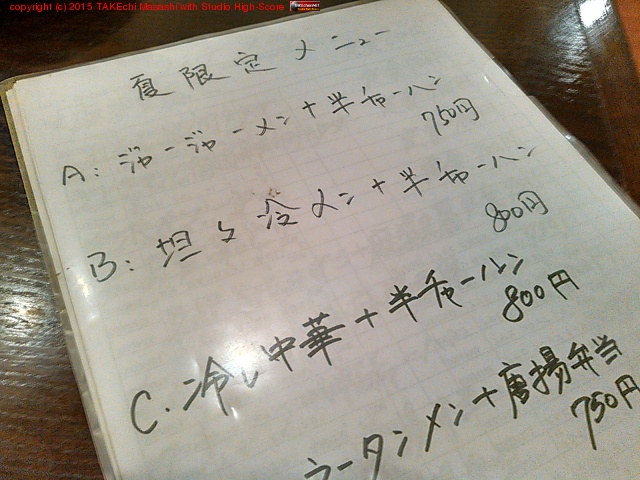 copyright (c) 2015 TAKEchi Masashi with Studio High-Score
夏限定メニュー
A: ジャージャーメン+半チャーハン
750円
B: 坦々冷メン+半チャーハン
800円
C. 冷し中華+半チャーハン
800円
ラータンメン+唐揚弁当
750円